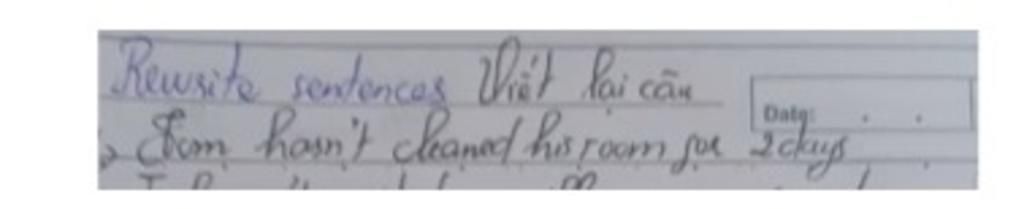 Rewsite sentences Viết lại câu
Date: . .
Tom hasn't cleaned his room for 2 days